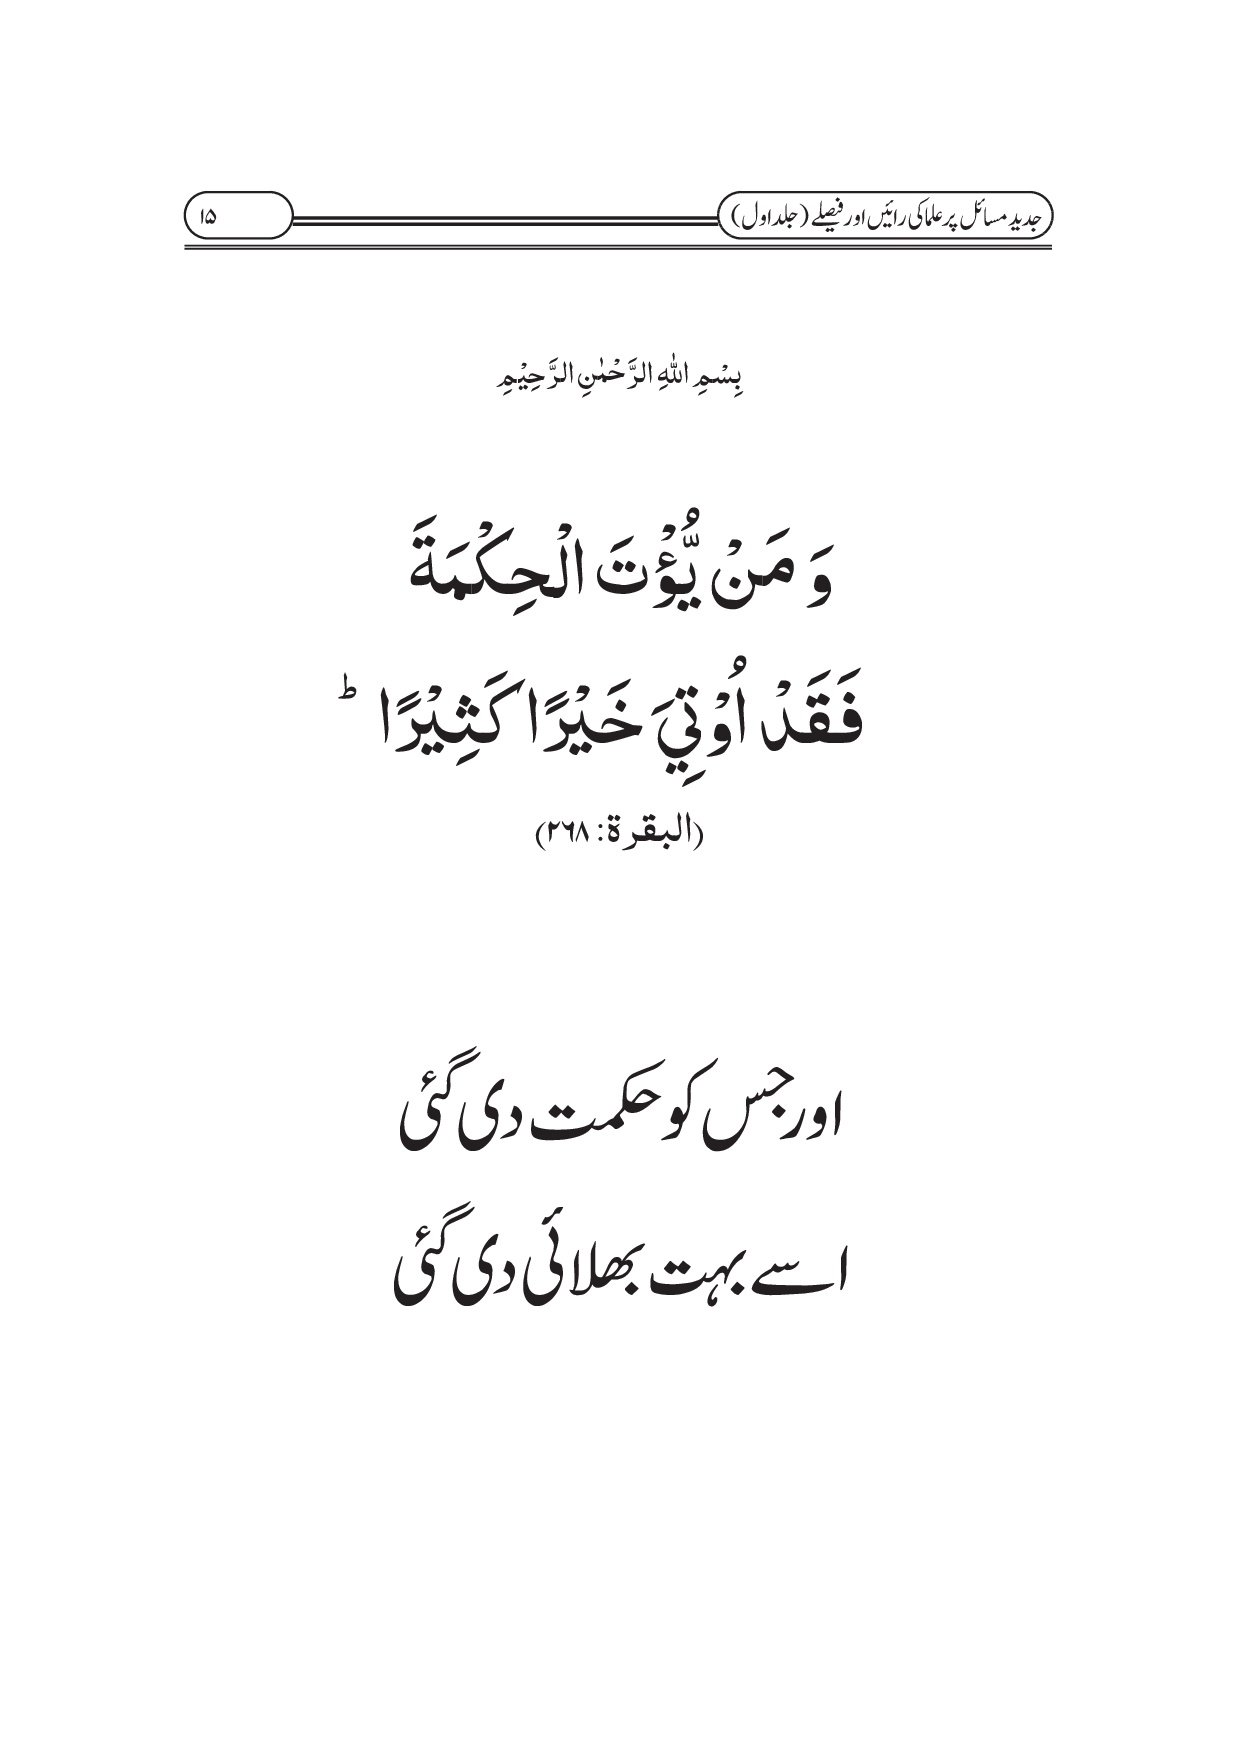 جدید مسائل پر علما کی رائیں اور فیصلے (جلد اول) ۱۵
بِسْمِ اللهِ الرَّحْمٰنِ الرَّحِيْمِ
وَ مَنْ يُّؤْتَ الْحِكْمَةَ
فَقَدْ اُوْتِيَ خَيْرًا كَثِيْرًا ؕ
(البقرة: ۲۶۸)
اور جس کو حکمت دی گئی
اسے بہت بھلائی دی گئی